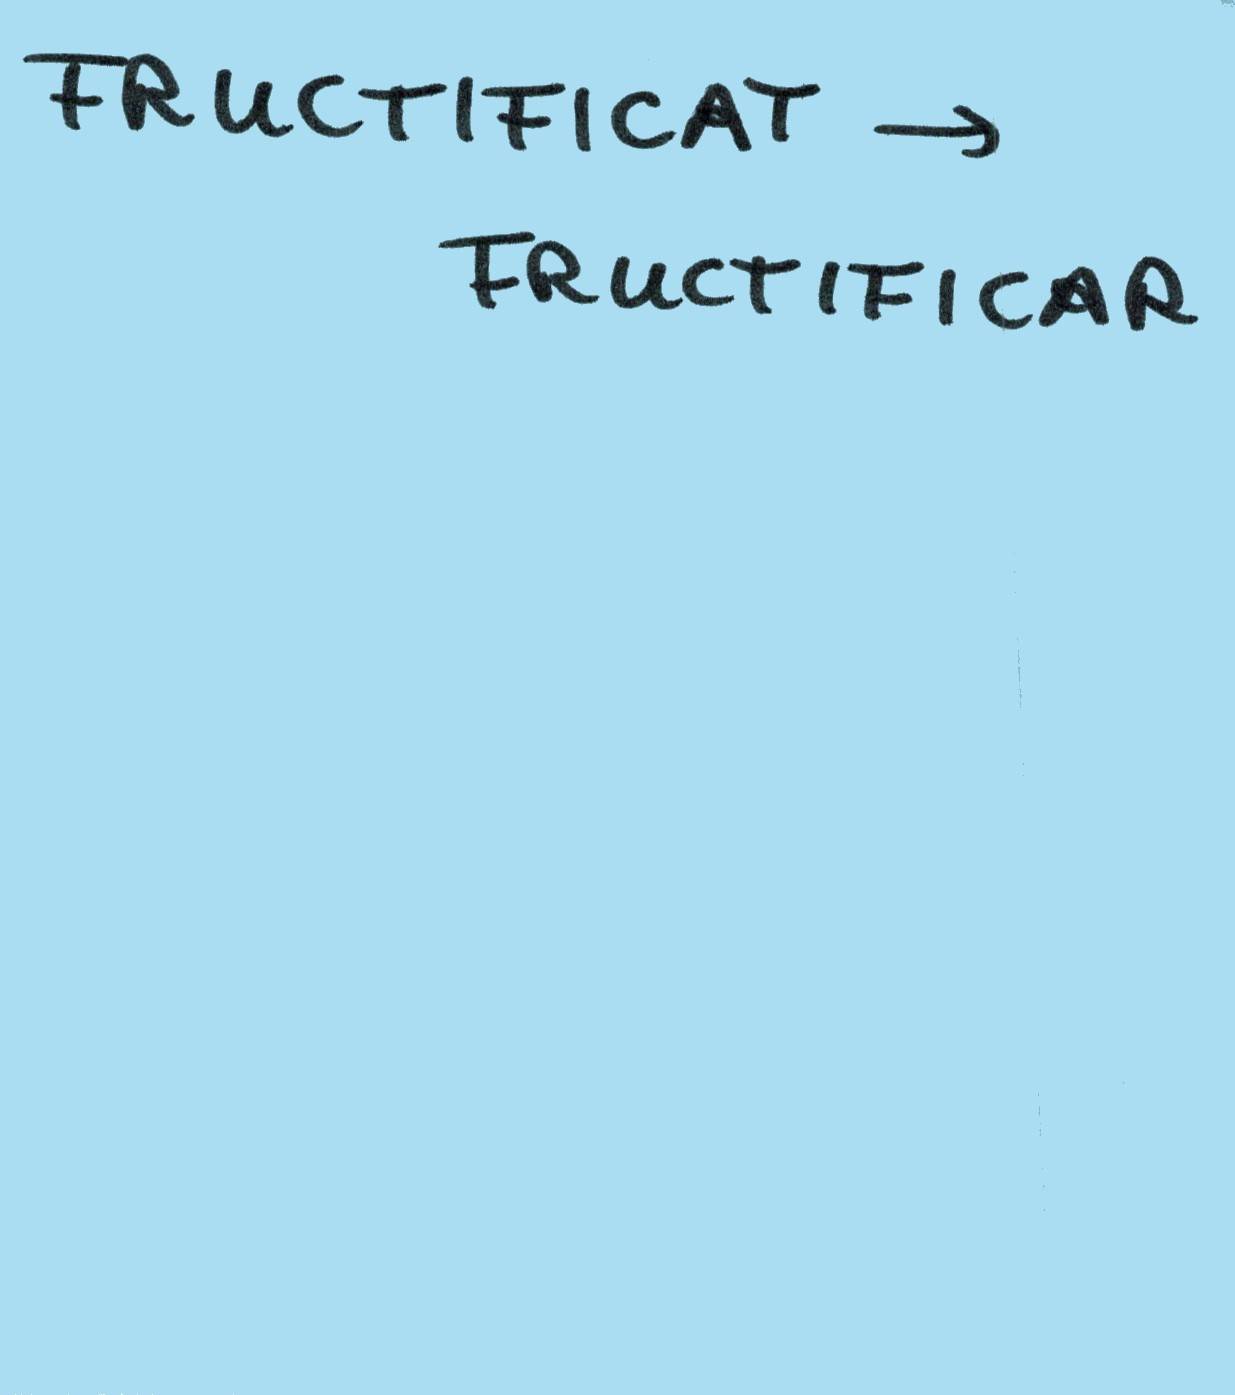 FRUCTIFICAT →
FRUCTIFICAR